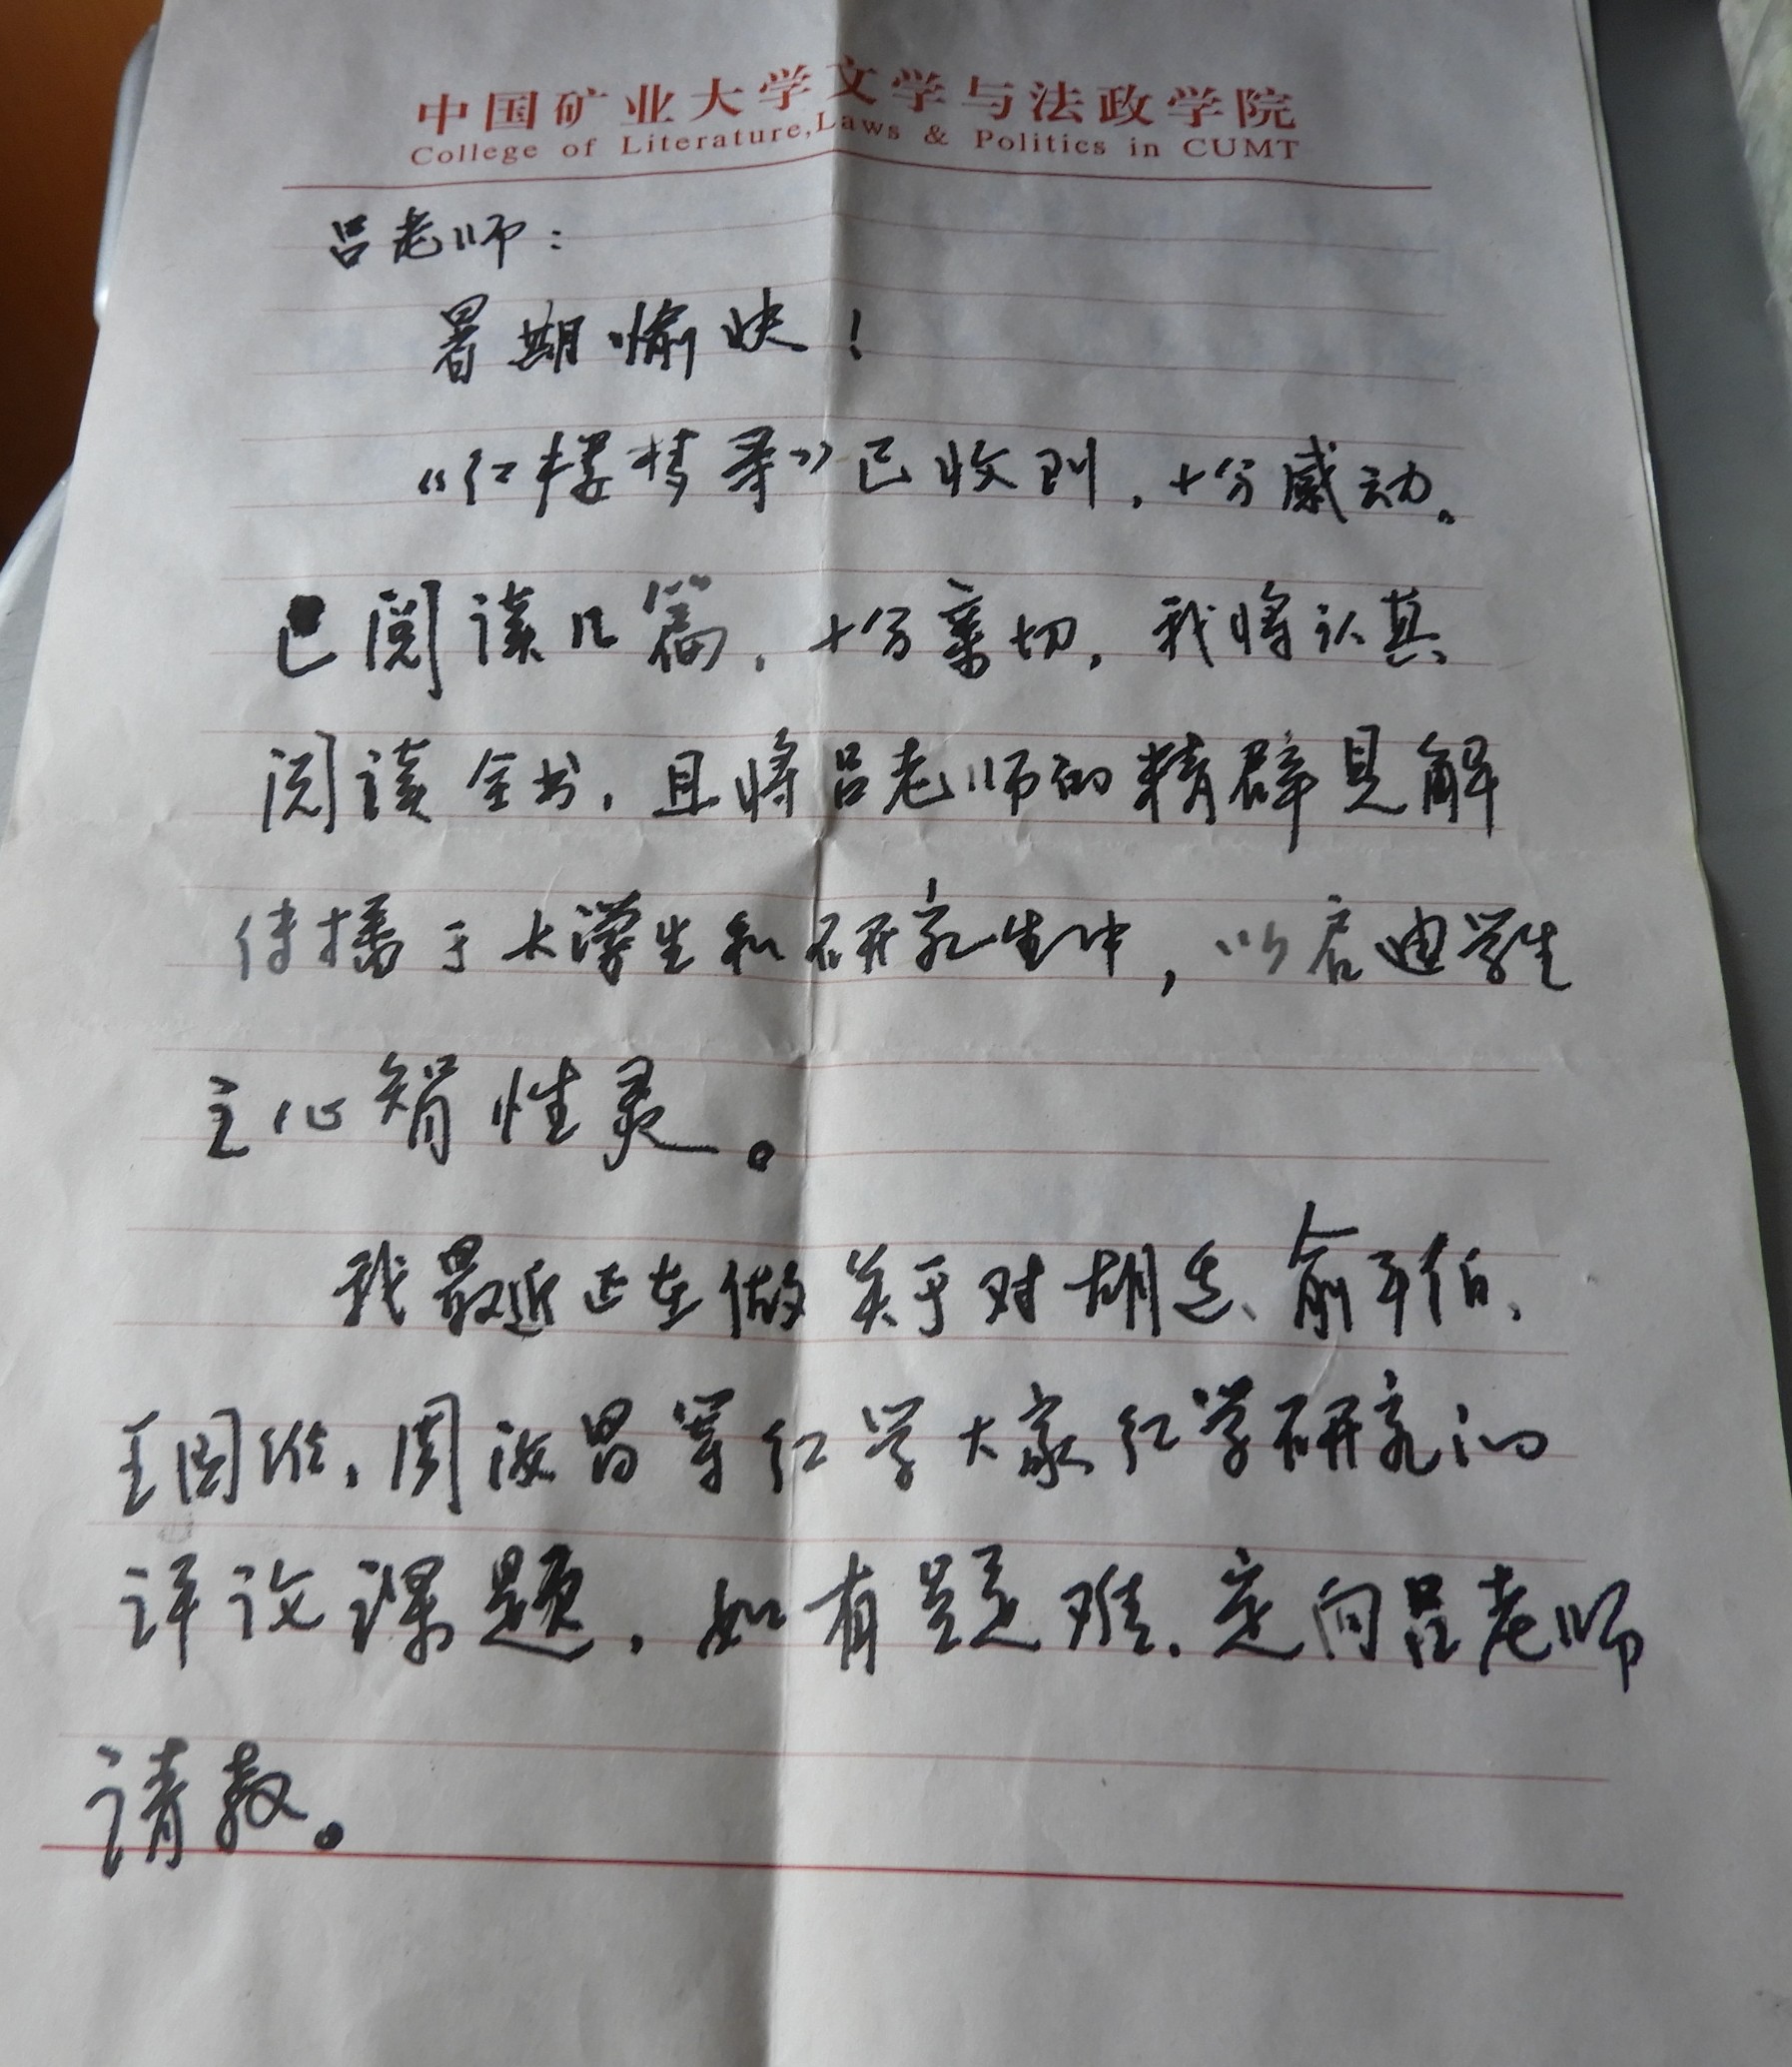 中国矿业大学文学与法政学院
College of Literature,Laws & Politics in CUMT
吕老师：
暑期愉快！
《红楼梦寻》已收到，十分感动。
已阅读几篇，十分亲切，我将认真
阅读全书，且将吕老师的精辟见解
传播于大学生和研究生中，以启迪学生
之心智性灵。
我最近正在做关于对胡适、俞平伯、
王国维、周汝昌等红学大家红学研究的
评议课题，如有疑难，定向吕老师
请教。